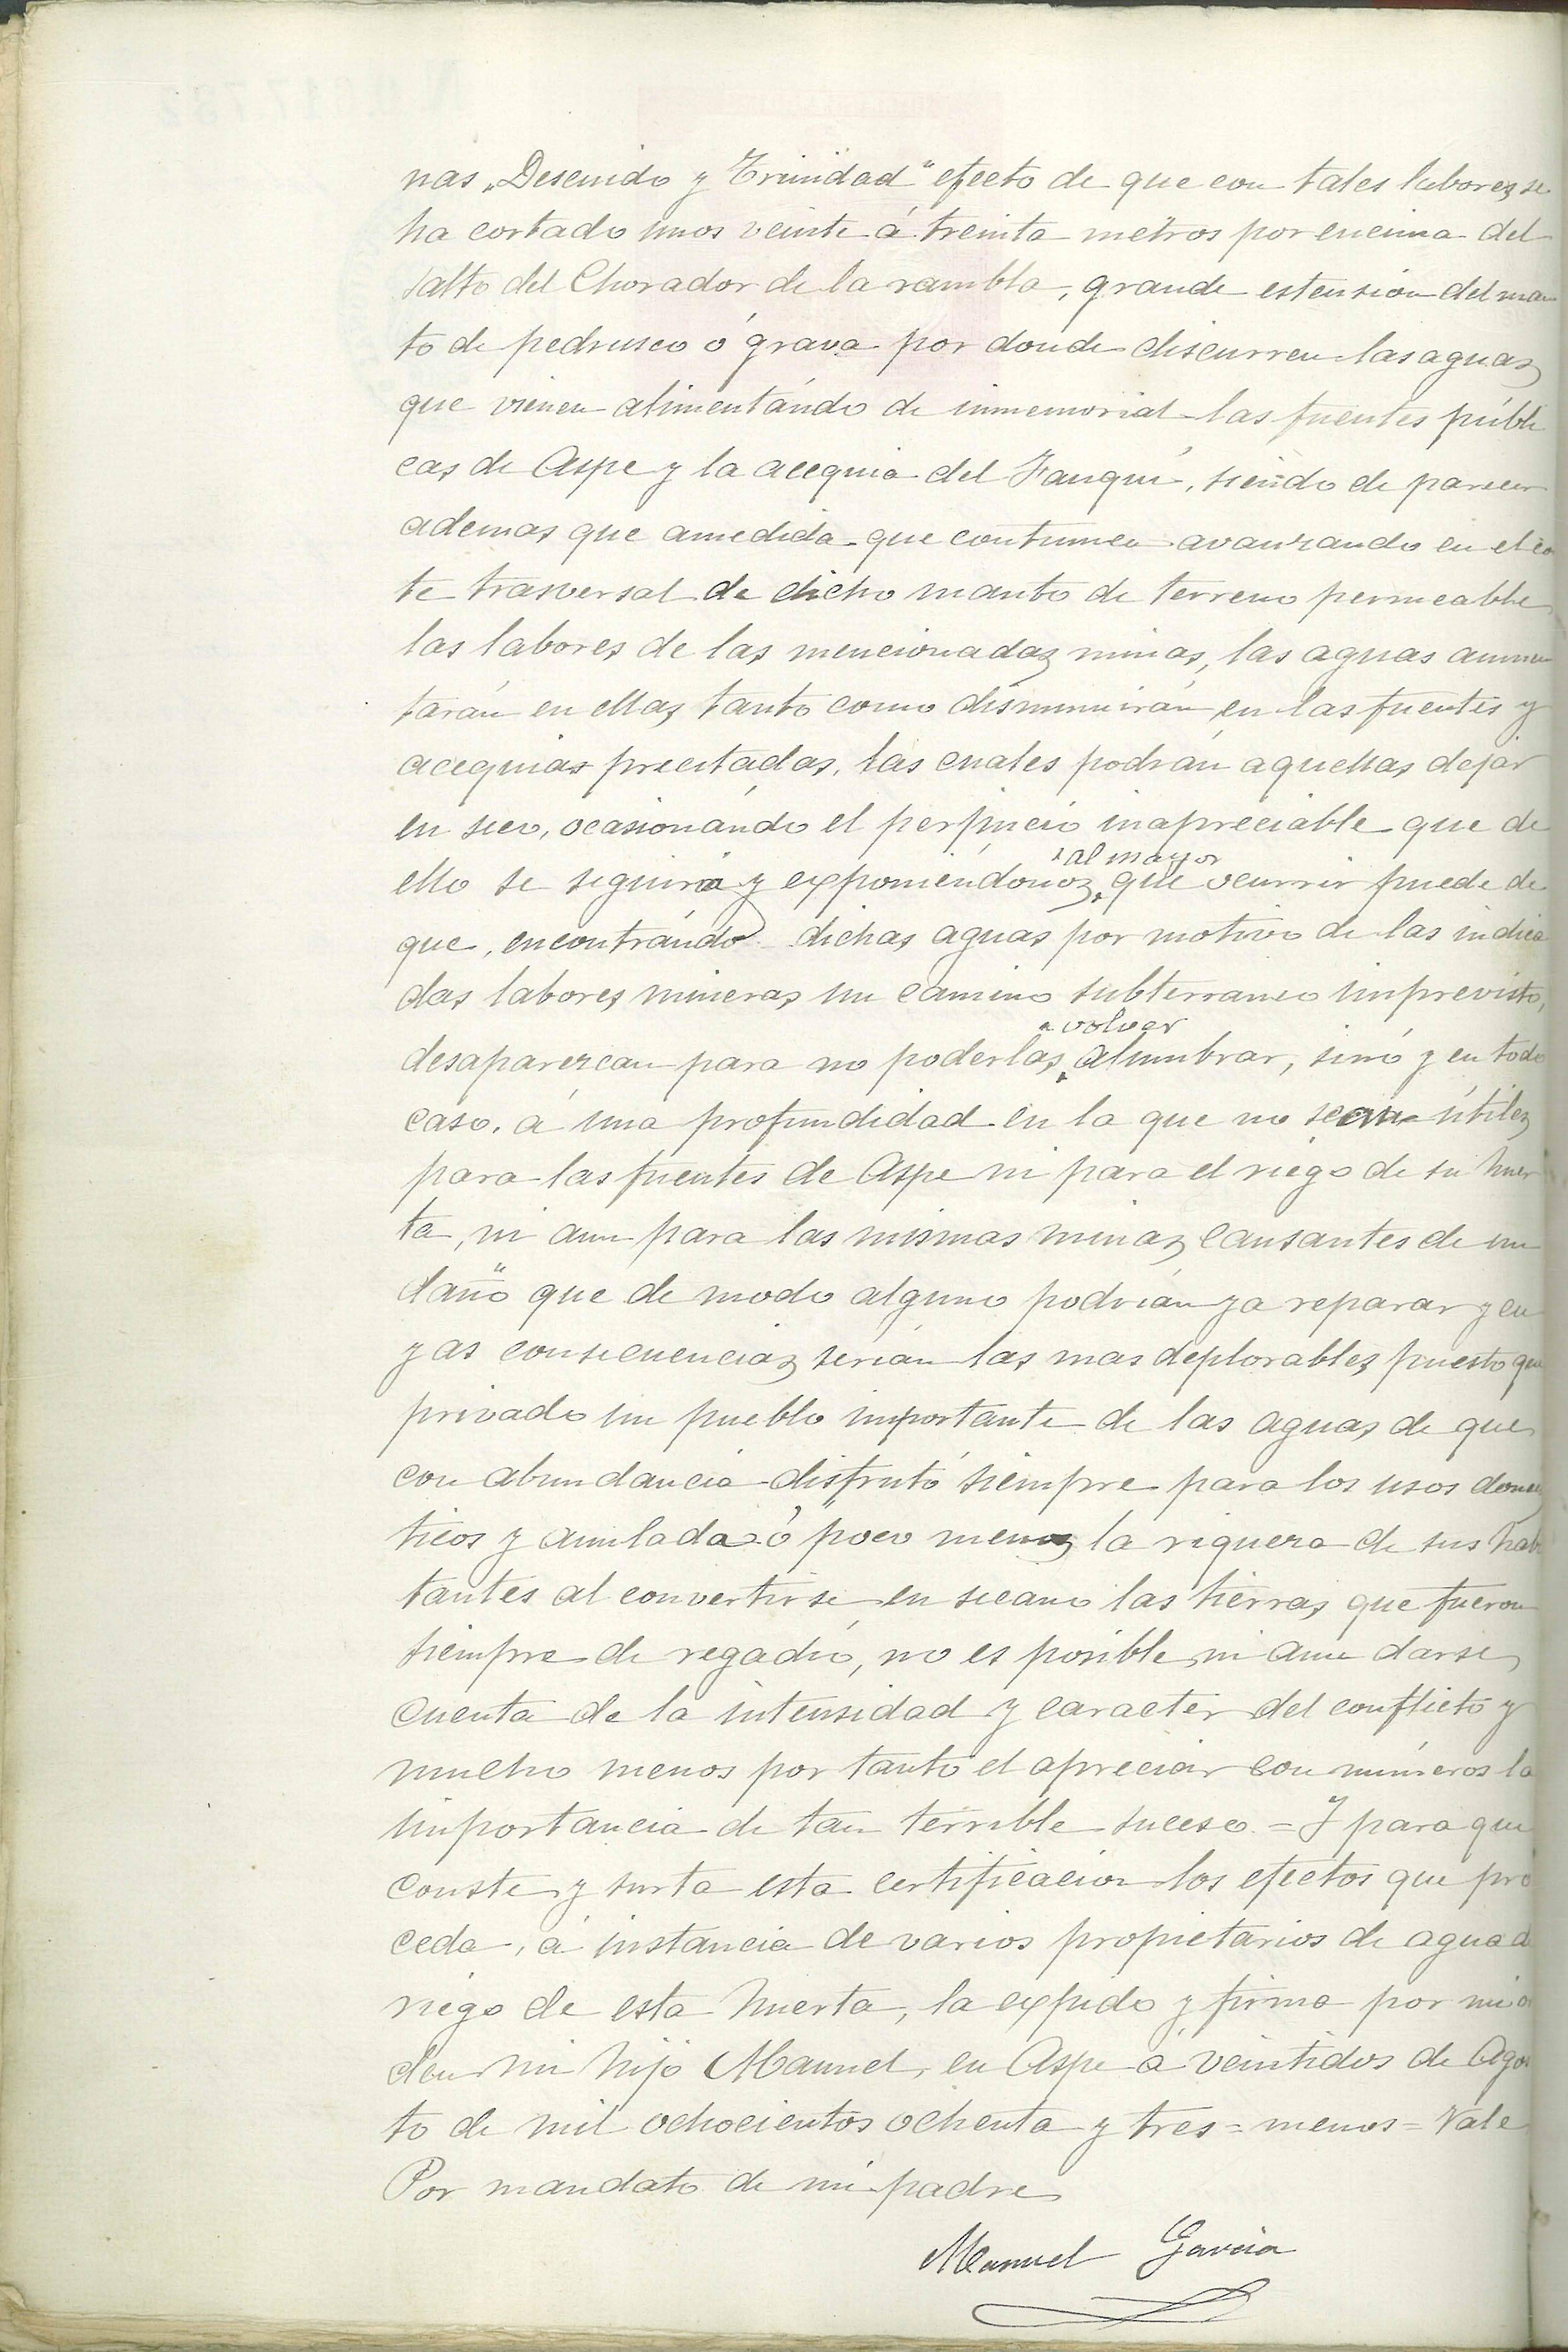 nas „Descuido y Trinidad" efecto de que con tales labores se
ha cortado unos veinte á treinta metros por encima del
salto del Chorador de la rambla, grande estension del man
to de pedrusco ó grava por donde discurren las aguas
que vienen alimentándo de inmemorial las fuentes públi
cas de Aspe y la acequia del Fauquí, siendo de parecer
ademas que amedida que continuen avanzando en el co
te trasversal de dicho manto de terreno permeable
las labores de las mencionadas minas, las aguas aumen
tarán en ellas tanto como disminuirán en las fuentes y
acequias precitadas, las cuales podrán aquellas dejar
en seco, ocasionándo el perjuicio inapreciable que de
al mayor
ello se seguirá y exponiéndonos que ocurrir puede de
que, encontrándo dichas aguas por motivo de las indica
das labores mineras un camino subterraneo imprevisto,
a volver
desaparezcan para no poderlas alumbrar, sinó y en todo
caso, á una profundidad en la que no sean útiles
para las fuentes de Aspe ni para el riego de su huer
ta, ni aun para las mismas minas causantes de un
daño que de modo alguno podrían ya reparar y cu
yas consecuencias serían las mas deplorables puesto que
privado un pueblo importante de las aguas de que
con abundancia disfrutó siempre para los usos domes
ticos y anulada ó poco menos la riqueza de sus habi
tantes al convertirse en secano las tierras que fueron
siempre de regadío, no es posible ni aun darse
cuenta de la intensidad y caracter del conflicto y
mucho menos por tanto el apreciar con números la
importancia de tan terrible suceso = Y para que
conste y surta esta certificacion los efectos que pro
ceda, á instancia de varios propietarios de agua de
riego de esta huerta, la expido y firma por mi or
den mi hijo Manuel, en Aspe á veintidos de Agos
to de mil ochocientos ochenta y tres = menos = Vale
Por mandato de mi padre
Manuel Garcia